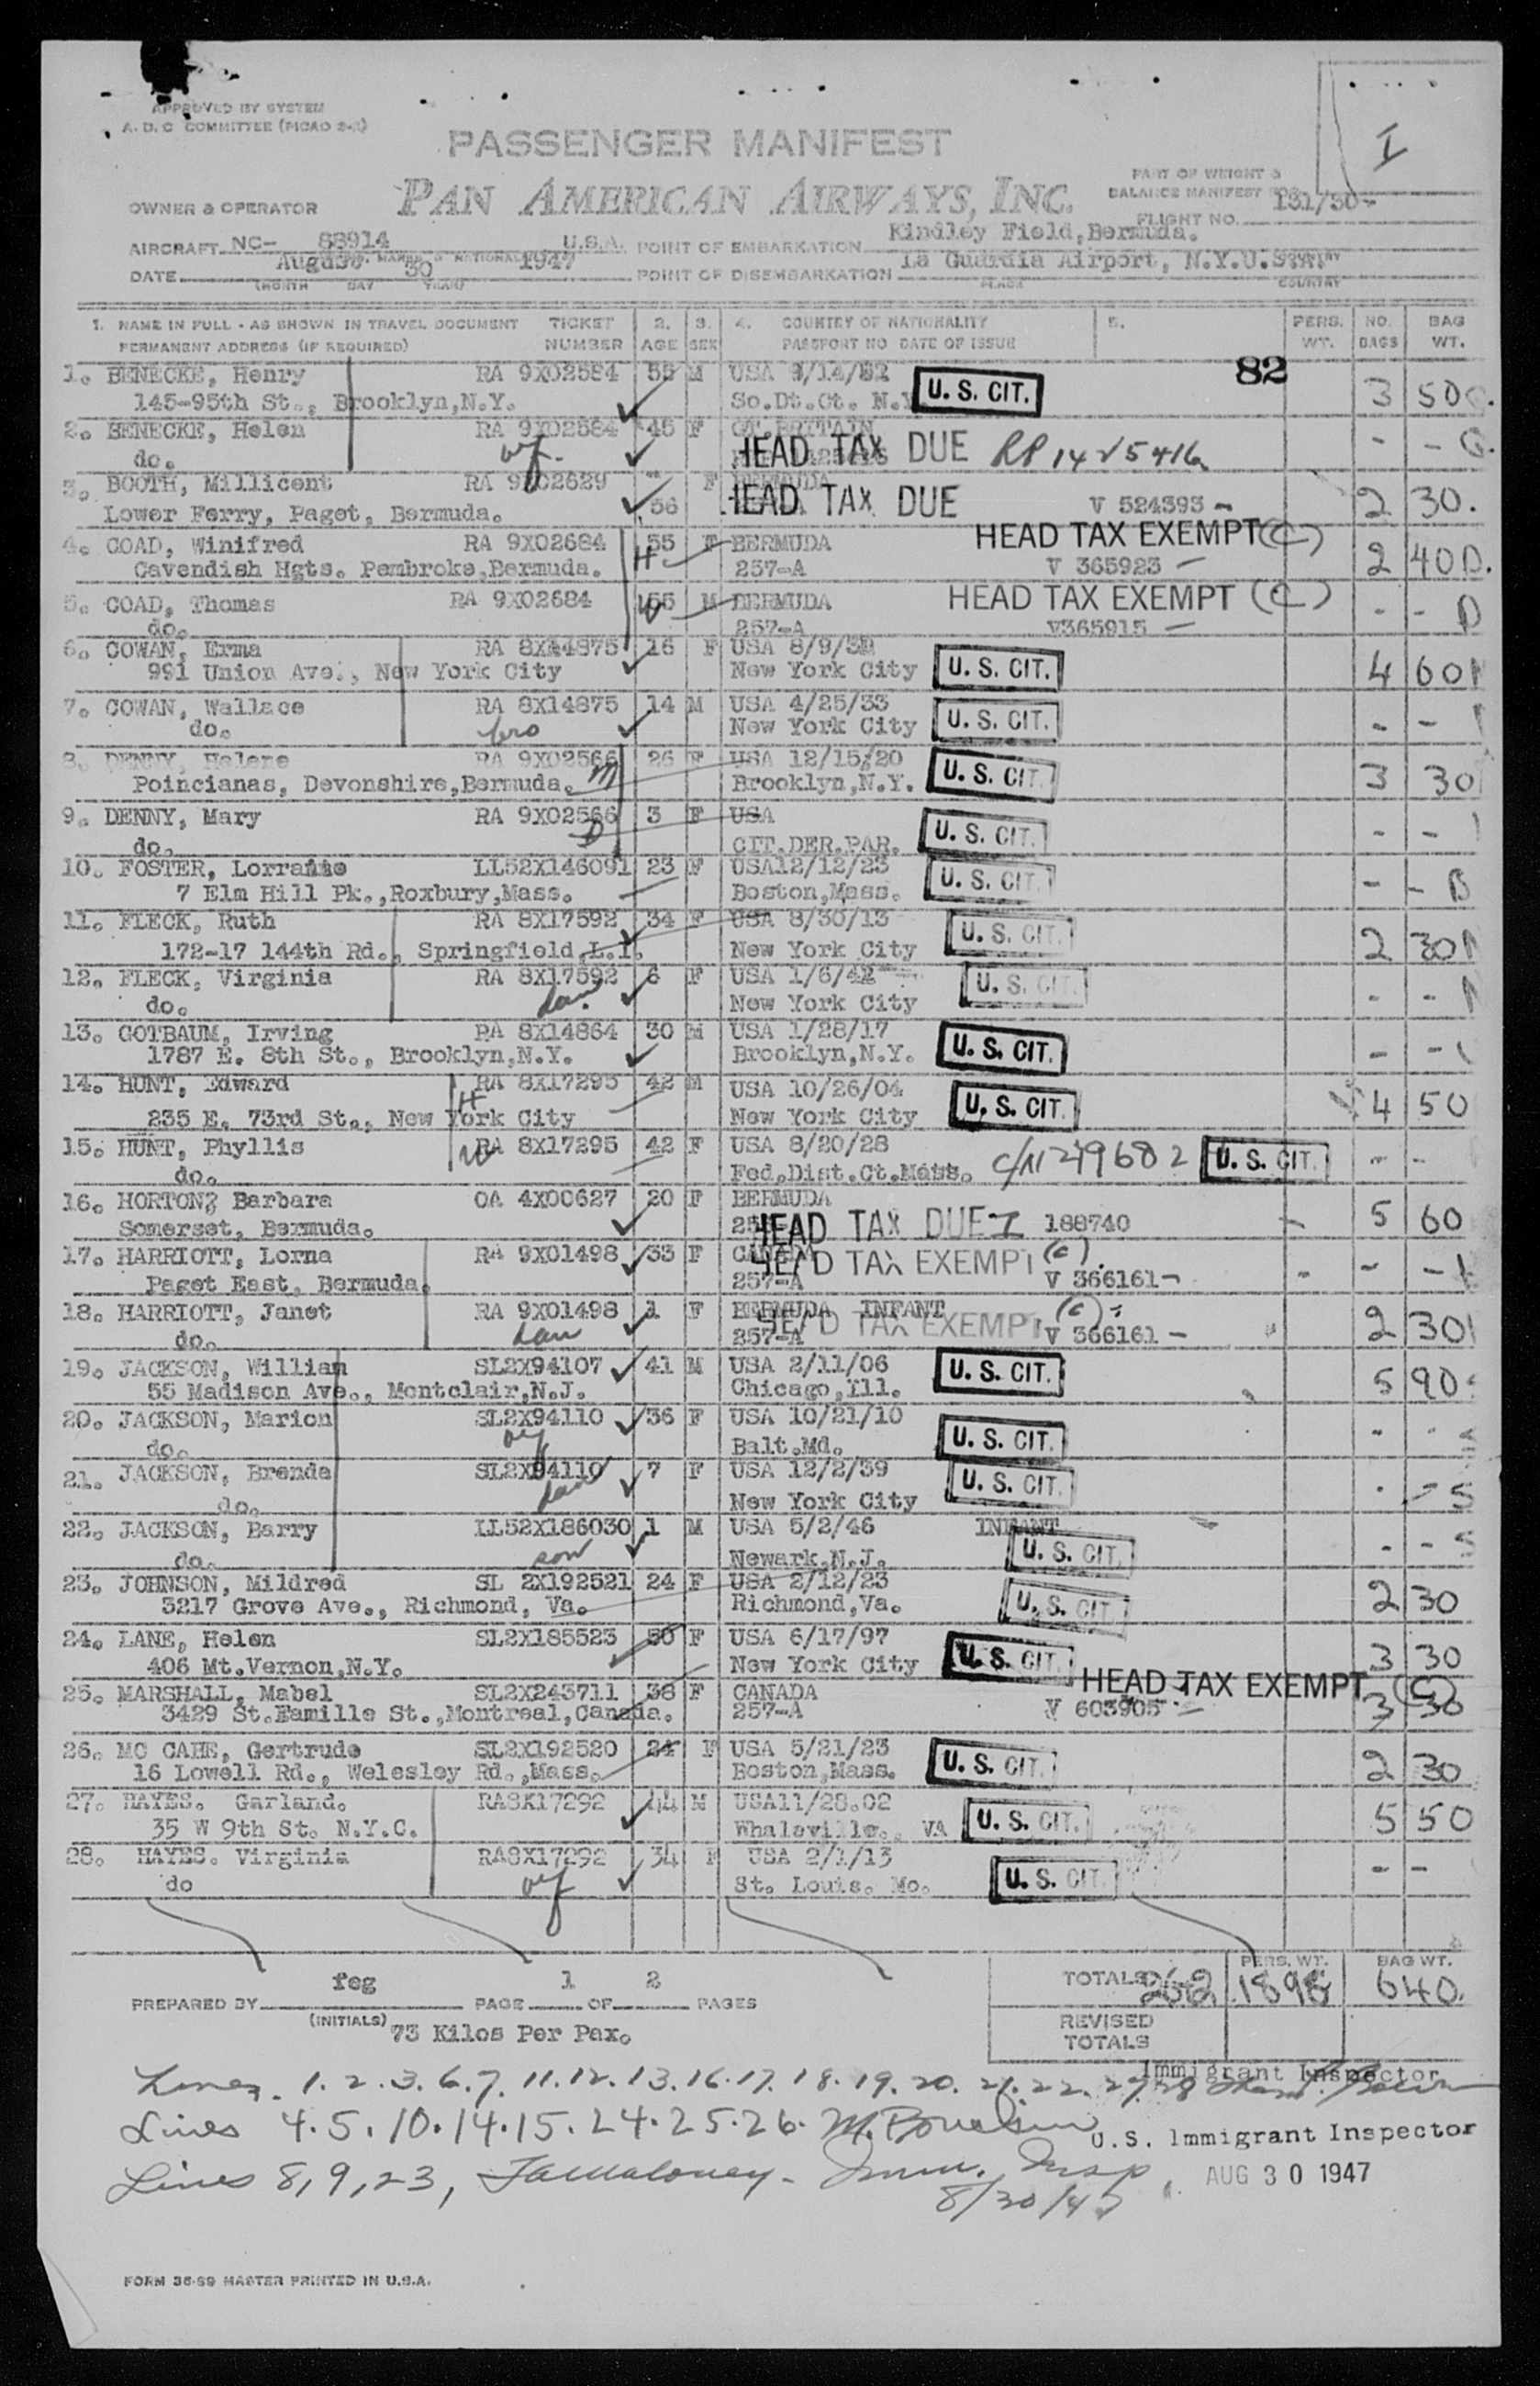 APPROVED BY SYSTEM
A. D. C COMMITTEE (PICAO 2-2)
I
PASSENGER MANIFEST
PART OF WEIGHT &
BALANCE MANIFEST
OWNER & OPERATOR PAN AMERICAN AIRWAYS, INC.
FLIGHT NO. 131/30-
AIRCRAFT NC- 88914 U.S.A. POINT OF EMBARKATION Kindley Field, Bermuda.
DATE August 30 1947 POINT OF DISEMBARKATION La Guardia Airport, N.Y.U.S.A.
(MONTH DAY YEAR) PLACE COUNTRY
1. NAME IN FULL - AS SHOWN IN TRAVEL DOCUMENT TICKET 2. 3. 4. COUNTRY OF NATIONALITY 5. PERS. NO. BAG
PERMANENT ADDRESS (IF REQUIRED) NUMBER AGE SEX PASSPORT NO DATE OF ISSUE WT. BAGS WT.
1. BENECKE, Henry RA 9X02584 55 M USA 82
145-95th St., Brooklyn,N.Y. So.Dt.Ct. N.Y U. S. CIT. 3 50
2. BENECKE, Helen RA 9X02584 45 F GT.BRITAIN
do. wf. HEAD TAX DUE - -
3. BOOTH, Millicent RA 9X02629 56 F BERMUDA
Lower Ferry, Paget, Bermuda. HEAD TAX DUE V 524393 - 2 30.
4. COAD, Winifred RA 9X02684 55 F BERMUDA HEAD TAX EXEMPT (C)
Cavendish Hgts. Pembroke,Bermuda. H 257-A V 365923 - 2 40
5. COAD, Thomas RA 9X02684 55 M BERMUDA HEAD TAX EXEMPT (C)
do. W 257-A V365915 - - -
6. COWAN, Erma RA 8X14875 16 F USA 8/9/
991 Union Ave., New York City New York City U. S. CIT. 4 60
7. COWAN, Wallace RA 8X14875 14 M USA 4/25/33
do. bro New York City U. S. CIT. - -
8. DENNY, Helene RA 9X02566 26 F USA 12/15/20
Poincianas, Devonshire,Bermuda. m Brooklyn,N.Y. U. S. CIT. 3 30
9. DENNY, Mary RA 9X02566 3 F USA
do. D CIT.DER.PAR. U. S. CIT. - -
10. FOSTER, Lorraine LL52X146091 23 F USA12/12/23
7 Elm Hill Pk.,Roxbury,Mass. Boston,Mass. U. S. CIT. - -
11. FLECK, Ruth RA 8X17592 34 F USA 8/30/13
172-17 144th Rd., Springfield,L.I. New York City U. S. CIT. 2 30
12. FLECK, Virginia RA 8X17592 6 F USA 1/6/42
do. dau. New York City U. S. CIT. - -
13. GOTBAUM, Irving RA 8X14864 30 M USA 1/28/17
1787 E. 8th St., Brooklyn,N.Y. Brooklyn,N.Y. U. S. CIT. - -
14. HUNT, Edward RA 8X17295 42 M USA 10/26/04
235 E. 73rd St., New York City H New York City U. S. CIT. 4 50
15. HUNT, Phyllis RA 8X17295 42 F USA 8/20/28
do. W Fed.Dist.Ct.Mass. U. S. CIT. - -
16. HORTON, Barbara OA 4X00627 20 F BERMUDA
Somerset, Bermuda. HEAD TAX DUE I 188740 5 60
17. HARRIOTT, Lorna RA 9X01498 33 F CANADA HEAD TAX EXEMPT (C)
Paget East, Bermuda. 257-A V 366161- - -
18. HARRIOTT, Janet RA 9X01498 1 F BERMUDA INFANT HEAD TAX EXEMPT (C)
do. dau 257-A V 366161 - 2 30
19. JACKSON, William SL2X94107 41 M USA 2/11/06
55 Madison Ave., Montclair,N.J. Chicago,Ill. U. S. CIT. 5 90
20. JACKSON, Marion SL2X94110 36 F USA 10/21/10
do. wf Balt.Md. U. S. CIT. - -
21. JACKSON, Brenda SL2X94110 7 F USA 12/2/39
do. dau New York City U. S. CIT. - -
22. JACKSON, Barry LL52X186030 1 M USA 5/2/46 INFANT
do. son Newark,N.J. U. S. CIT. - -
23. JOHNSON, Mildred SL 2X192521 24 F USA 2/12/23
3217 Grove Ave., Richmond, Va. Richmond,Va. U. S. CIT. 2 30
24. LANE, Helen SL2X185523 50 F USA 6/17/97
406 Mt.Vernon,N.Y. New York City U. S. CIT. 3 30
25. MARSHALL, Mabel SL2X243711 38 F CANADA HEAD TAX EXEMPT (C)
3429 St.Famille St.,Montreal,Canada. 257-A V 603905 - 3 30
26. MC CABE, Gertrude SL2X192520 24 F USA 5/21/23
16 Lowell Rd., Welesley Rd.,Mass. Boston,Mass. U. S. CIT. 2 30
27. HAYES. Garland. RA8X17292 44 M USA11/28.02
35 W 9th St. N.Y.C. Whaleville., VA U. S. CIT. 5 50
28. HAYES. Virginia RA8X17292 34 F USA 2/1/13
do wf St. Louis. Mo. U. S. CIT. - -
PREPARED BY feg PAGE 1 OF 2 PAGES
(INITIALS)
73 Kilos Per Pax.
PERS. WT. BAG WT.
TOTALS 640
REVISED
TOTALS
Immigrant Inspector
Lines. 1. 2. 3. 6. 7. 11. 12. 13. 16. 17. 18. 19. 20. 21. 22. 27. 28
Lines 4. 5. 10. 14. 15. 24. 25. 26.
U.S. Immigrant Inspector
Lines 8, 9, 23, Imm. Insp.
8/30/47
AUG 30 1947
FORM 36-59 MASTER PRINTED IN U.S.A.